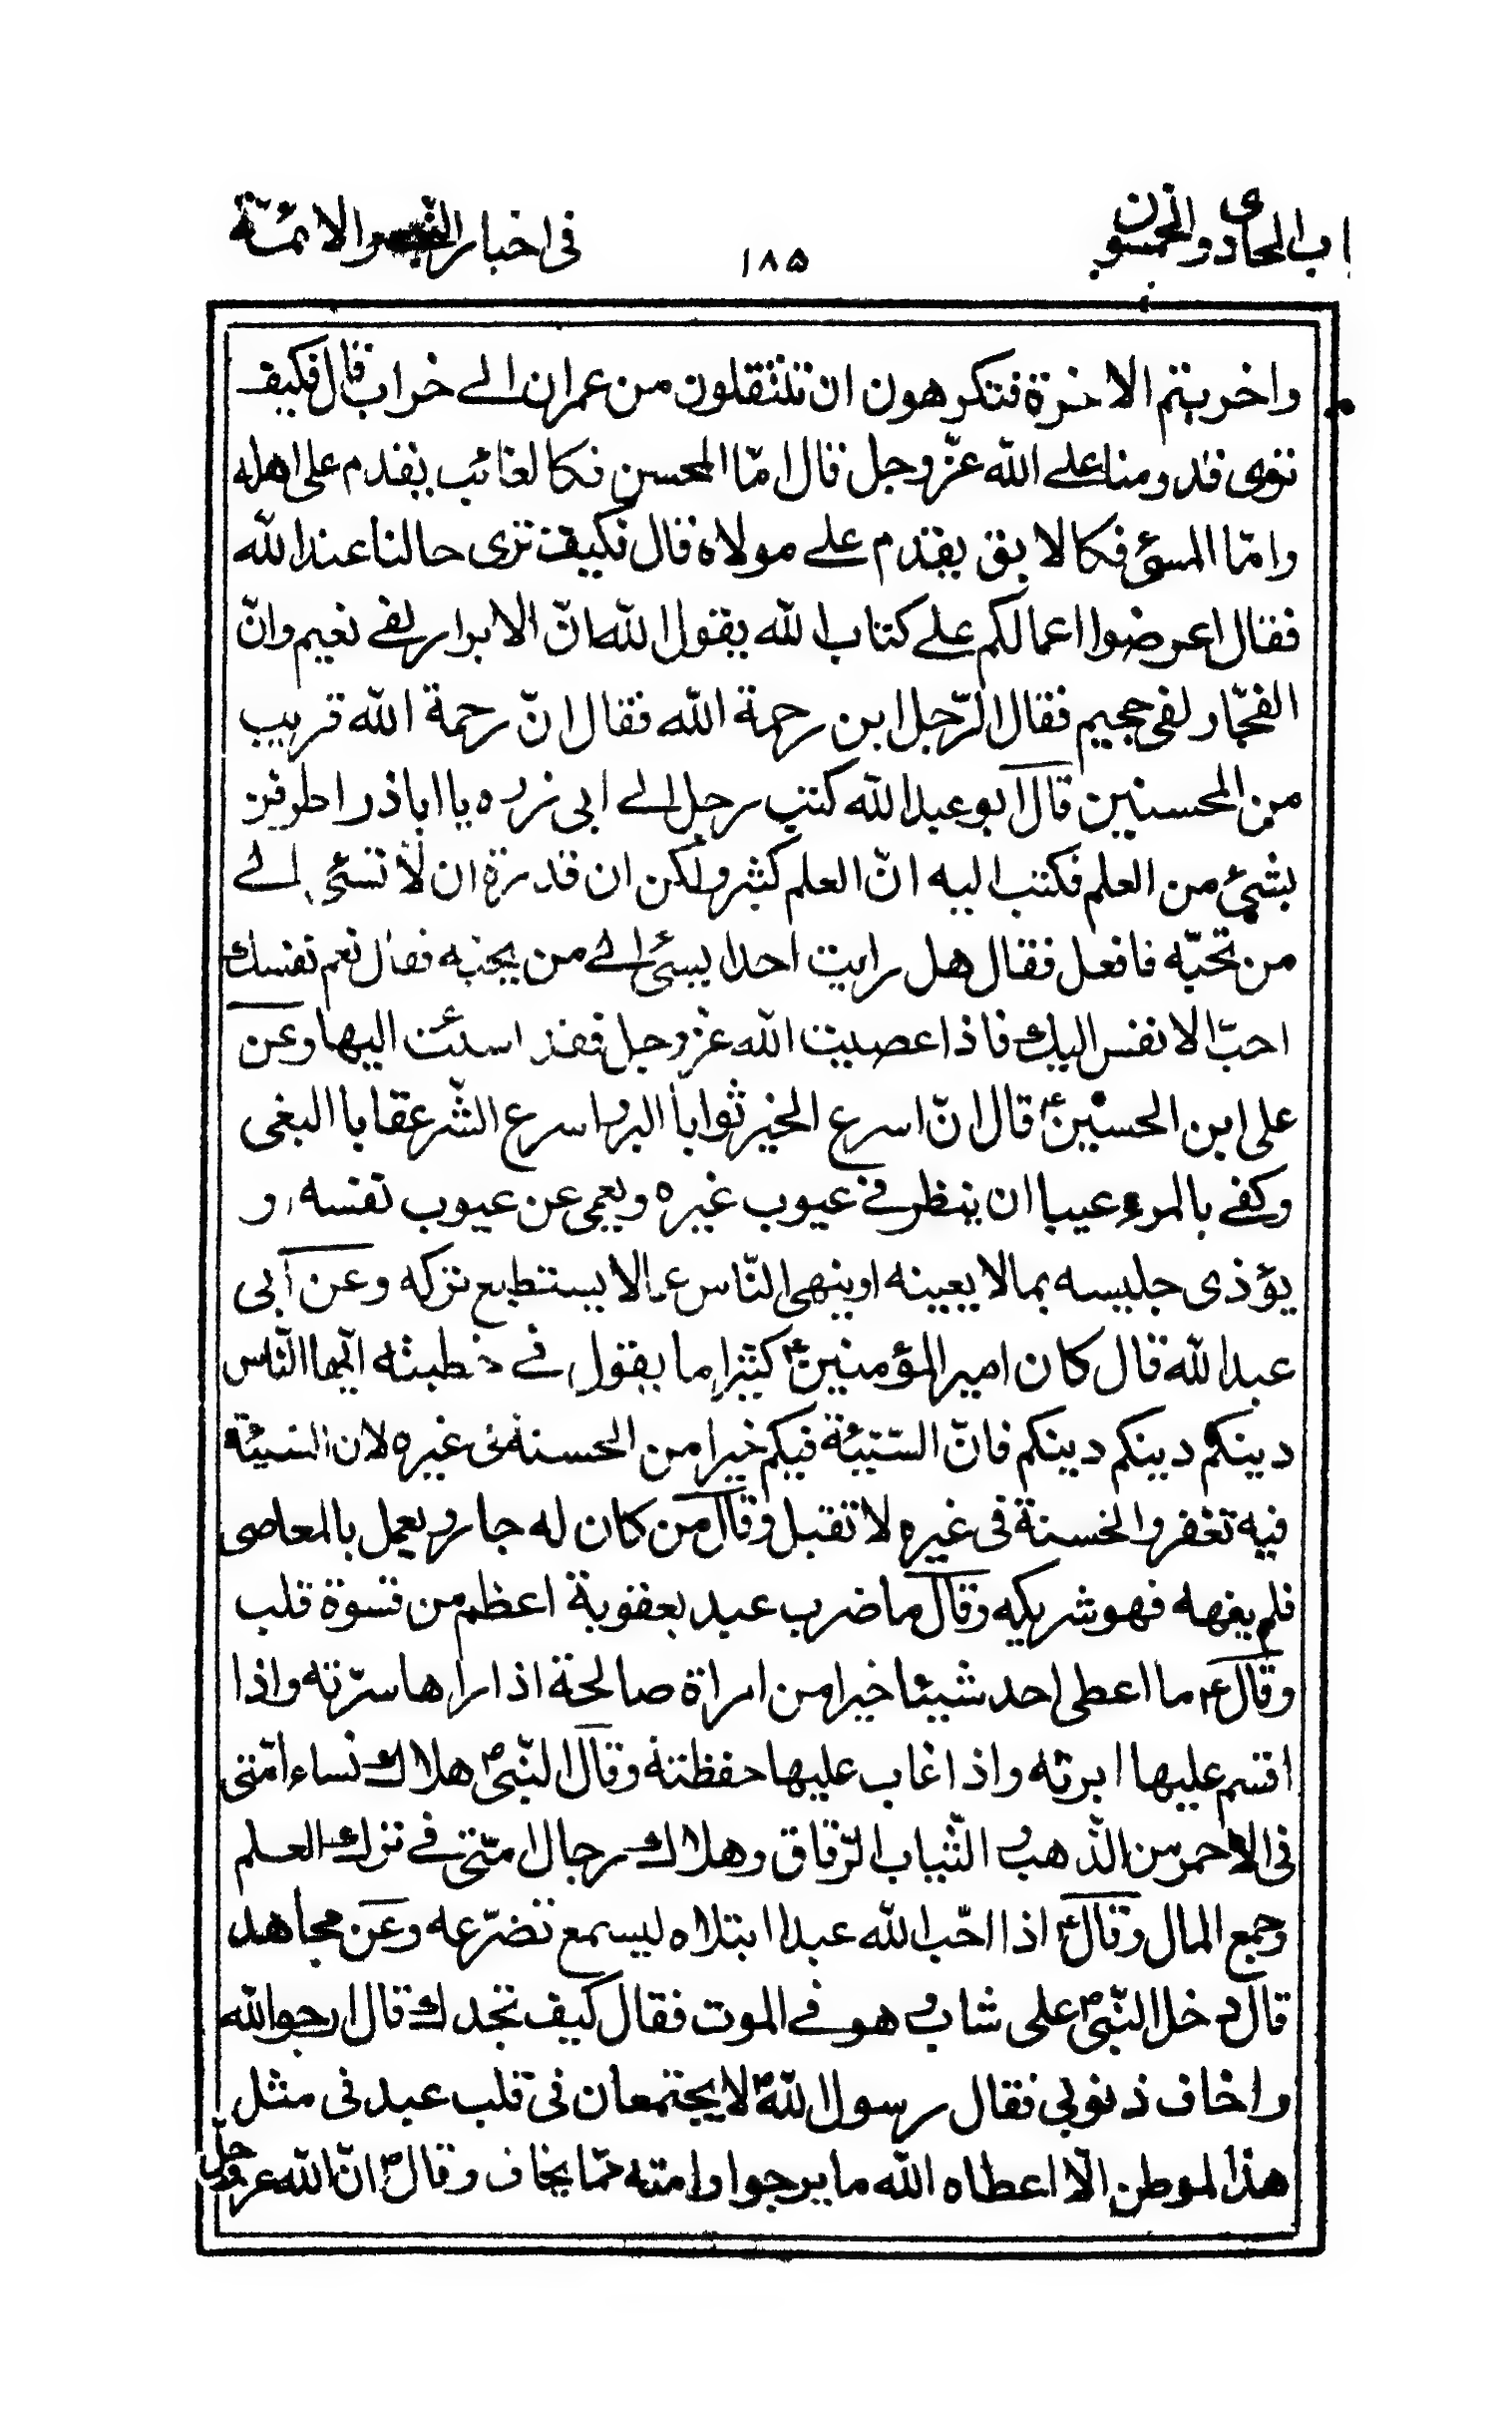 اب الحادی والخمسون ١٨٥ فی اخبار النبی والائمّة
واخربتم الاخرة فتكرهون ان تنتقلون من عمران الے خراب قال فكيف
تری قدومنا علے الله عزّوجل قال امّا المحسن فكالغائب يقدم علی اهله
وامّا المسئ فكالابق يقدم علے مولاه قال فكيف تری حالنا عند الله
فقال اعرضوا اعمالكم علے كتاب الله يقول الله انّ الابرار لفے نعيم وانّ
الفجّار لفی جحيم فقال الرّجل اين رحمة الله فقال انّ رحمة الله قريب
من المحسنين قال ابو عبد الله كتب رجل الے ابی ذر ره يا اباذر اطرفنی
بشئ من العلم فكتب اليه انّ العلم كثير ولكن ان قدرت ان لا تسئ الے
من تحبّه فافعل فقال هل رايت احدا يسئ الے من يحبّه فقال نعم نفسك
احبّ الانفس اليك فاذا عصيت الله عزوجل فقد اسئت اليها وعن
علی ابن الحسين ؑ قال انّ اسرع الخير ثوابا البر واسرع الشّر عقابا البغی
وكفے بالمرء عيبا ان ينظر فے عيوب غيره ويعمی عن عيوب نفسه و
يؤذی جليسه بما لا يعينه او ينهی النّاس عما لا يستطيع تركه وعن ابی
عبد الله قال كان امير المؤمنين ؑ كثيرا ما يقول فے خطبته ايّها النّاس
دينكم دينكم دينكم فانّ السّيئة فيكم خيرا من الحسنة فی غيره لان السيئة
فيه تغفر والحسنة فی غيره لا تقبل وقال من كان له جار ويعمل بالمعاصی
فلم ينهه فهو شريكه وقال ما ضرب عبد بعقوبة اعظم من قسوة قلب
وقال ؑ ما اعطی احد شيئا خيرا من امراة صالحة اذا راها سرّته واذا
اقسم عليها ابرته واذا غاب عليها حفظته وقال النّبی ؐ هلاك نساء امّتی
فی الاحمر من الذّهب و الثّياب الرّقاق وهلاك رجال امّتی فے ترك العلم
وجمع المال وقال ؑ اذا احّب الله عبدا ابتلاه ليسمع تضرّعه وعن مجاهد
قال دخل النّبی ؐ علی شاب وهو فے الموت فقال كيف تجدك قال ارجو الله
واخاف ذنوبی فقال رسول الله ؐ لا يجتمعان فی قلب عبد فی مثل
هذا لموطن الّا اعطاه الله ما يرجوا وامنه ممّا يخاف وقال ؐ انّ الله عزوجلّ